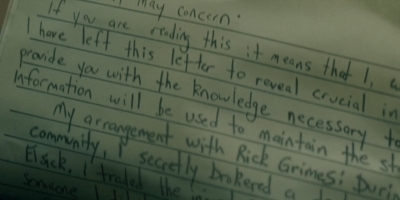 may concern:
If you are reading this it means that I,
I have left this letter to reveal crucial in
provide you with the knowledge necessary to
Information will be used to maintain the st
My arrangement with Rick Grimes: Durin
community, I secretly brokered a
I traded the
someone